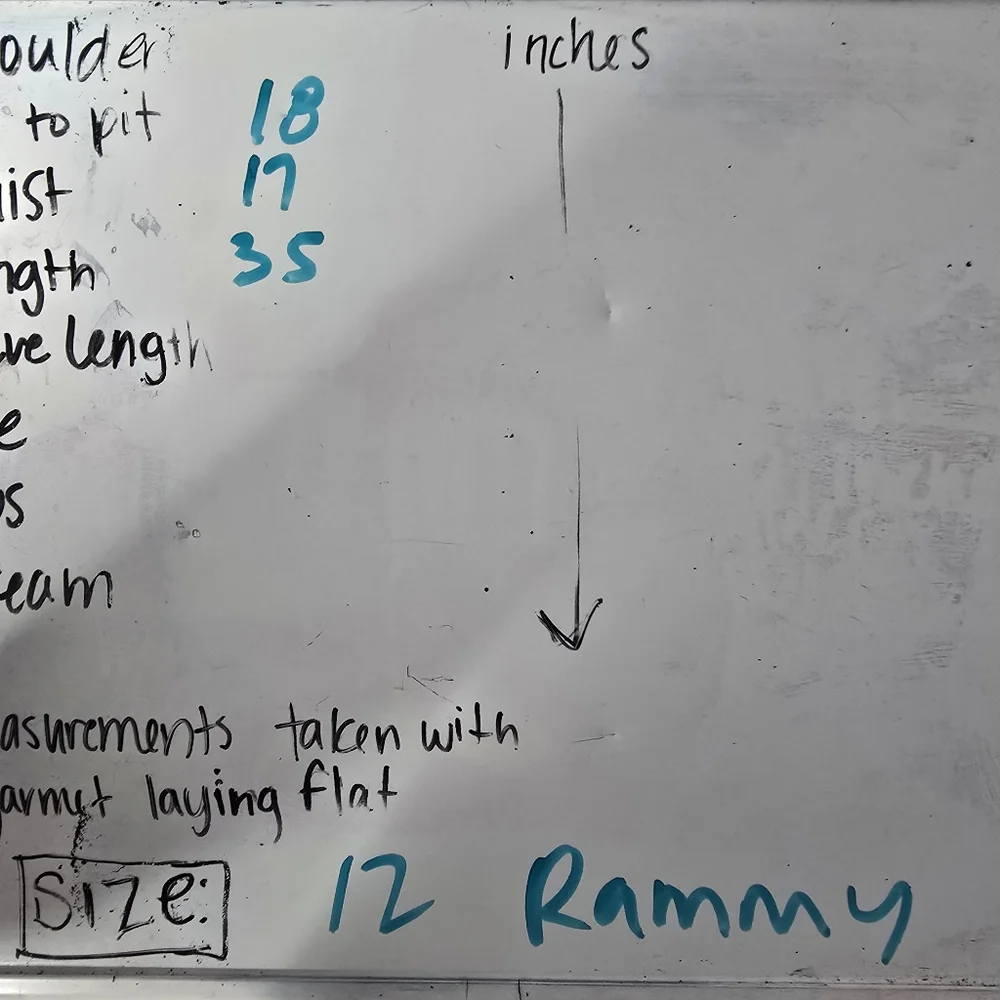 oulder inches
to pit 18
ist 17
ngth 35
ve length
e
s
eam
asurements taken with
armet laying flat
Size: 12 Rammy